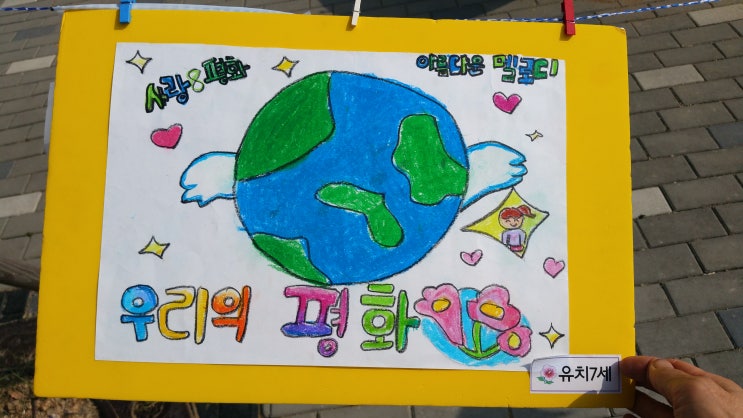 사랑&평화
아름다운 멜로디
우리의 평화
유치7세